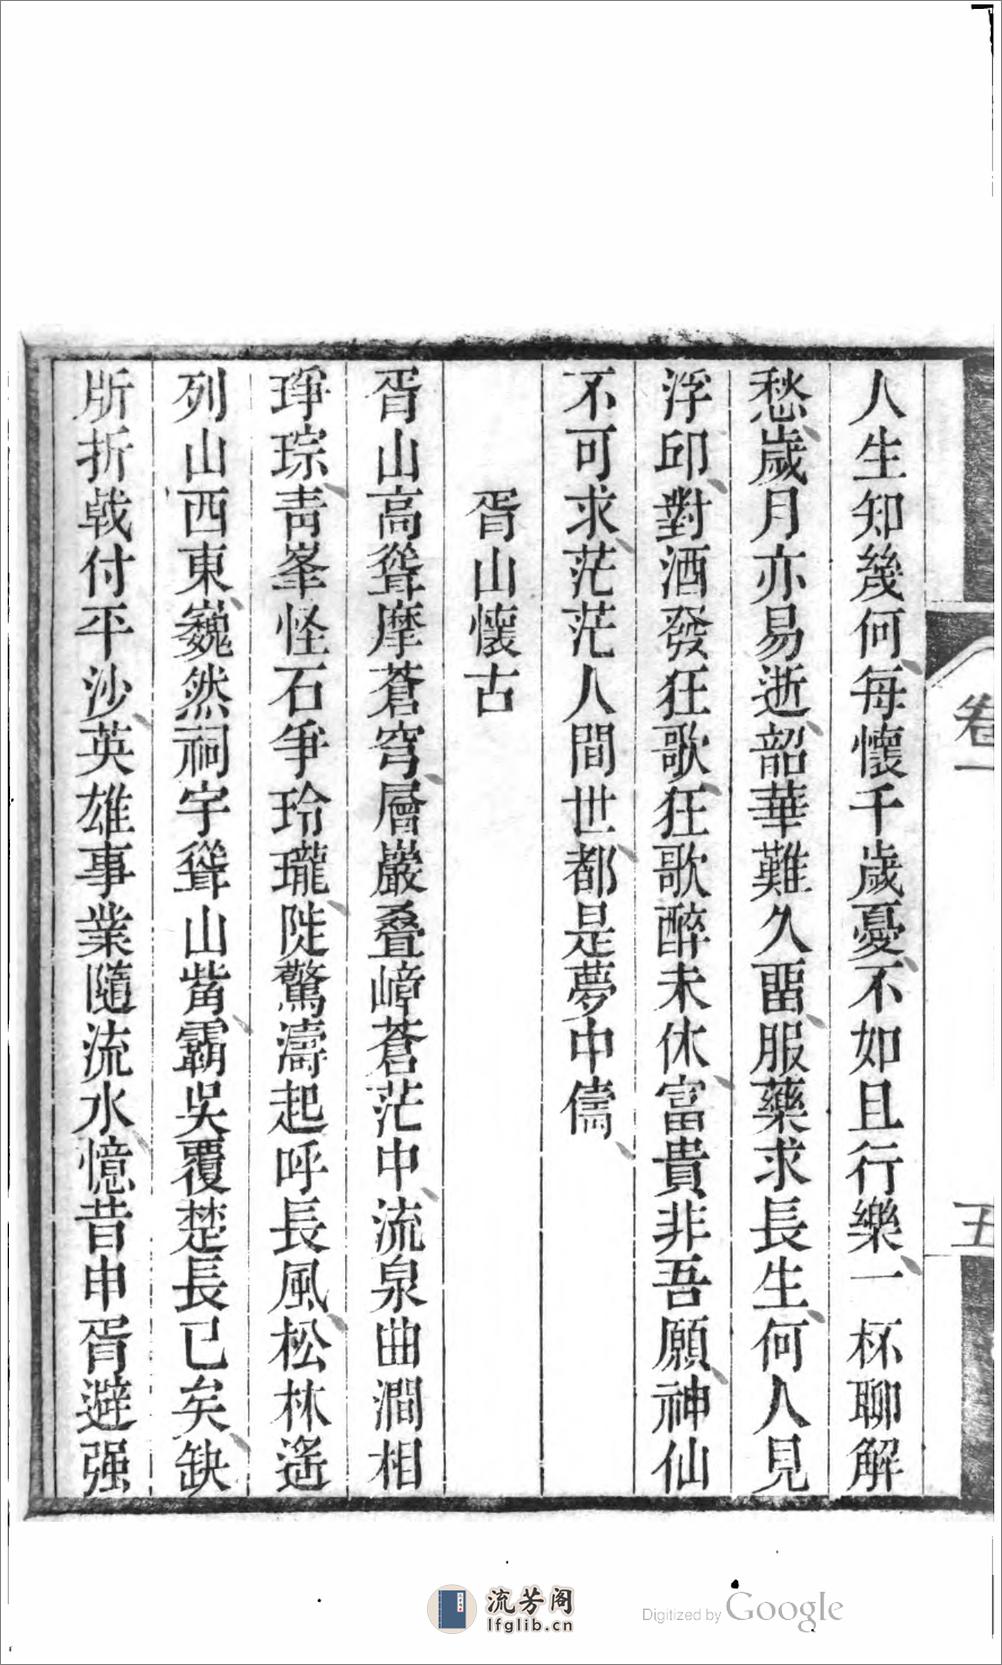 卷一
五
人生知幾何每懷千歲憂不如且行樂一杯聊解
愁歲月亦易逝韶華難久留服藥求長生何人見
浮邱對酒發狂歌狂歌醉未休富貴非吾願神仙
不可求茫茫人間世都是夢中儔
胥山懷古
胥山高聳摩蒼穹層巖疊嶂蒼茫中流泉曲澗相
琤琮青峯怪石爭玲瓏陡驚濤起呼長風松林遙
列山西東巍然祠宇聳山觜霸吳覆楚長已矣缺
斨折戟付平沙英雄事業隨流水憶昔申胥避强
流芳阁
lfglib.cn
Digitized by Google